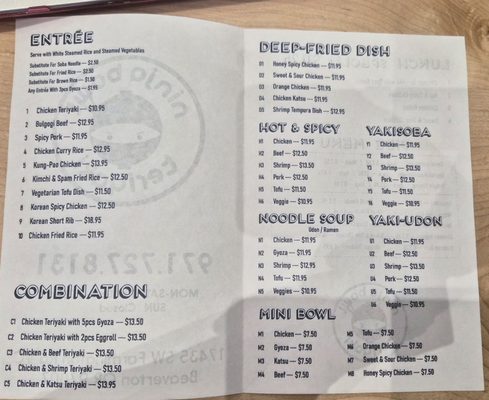 ENTRÉE
Serve with White Steamed Rice and Steamed Vegetables
Substitute For Soba Noodle — $2.50
Substitute For Fried Rice — $2.50
Substitute For Brown Rice — $1.50
Any Entrée With 3pcs Gyoza — $1.95
1 Chicken Teriyaki — $10.95
2 Bulgogi Beef — $12.95
3 Spicy Pork — $11.95
4 Chicken Curry Rice — $12.95
5 Kung-Pao Chicken — $13.95
6 Kimchi & Spam Fried Rice — $12.50
7 Vegetarian Tofu Dish — $11.50
8 Korean Spicy Chicken — $12.50
9 Korean Short Rib — $18.95
10 Chicken Fried Rice — $11.95
COMBINATION
C1 Chicken Teriyaki with 5pcs Gyoza — $13.50
C2 Chicken Teriyaki with 2pcs Eggroll — $13.50
C3 Chicken & Beef Teriyaki — $13.50
C4 Chicken & Shrimp Teriyaki — $13.50
C5 Chicken & Katsu Teriyaki — $13.95
DEEP-FRIED DISH
D1 Honey Spicy Chicken — $11.95
D2 Sweet & Sour Chicken — $11.95
D3 Orange Chicken — $11.95
D4 Chicken Katsu — $11.95
D5 Shrimp Tempura Dish — $12.95
HOT & SPICY
H1 Chicken — $11.95
H2 Beef — $12.50
H3 Shrimp — $13.50
H4 Pork — $12.50
H5 Tofu — $11.50
H6 Veggie — $10.95
YAKISOBA
Y1 Chicken — $11.95
Y2 Beef — $12.50
Y3 Shrimp — $13.50
Y4 Pork — $12.50
Y5 Tofu — $11.50
Y6 Veggie — $10.95
NOODLE SOUP
Udon / Ramen
N1 Chicken — $11.95
N2 Gyoza — $11.95
N3 Shrimp — $12.95
N4 Tofu — $11.95
N5 Veggies — $10.95
YAKI-UDON
U1 Chicken — $11.95
U2 Beef — $12.50
U3 Shrimp — $13.50
U4 Pork — $12.50
U5 Tofu — $11.50
U6 Veggie — $10.95
MINI BOWL
M1 Chicken — $7.50
M2 Gyoza — $7.50
M3 Katsu — $7.50
M4 Beef — $7.50
M5 Tofu — $7.50
M6 Orange Chicken — $7.50
M7 Sweet & Sour Chicken — $7.50
M8 Honey Spicy Chicken — $7.50
971.727.8131